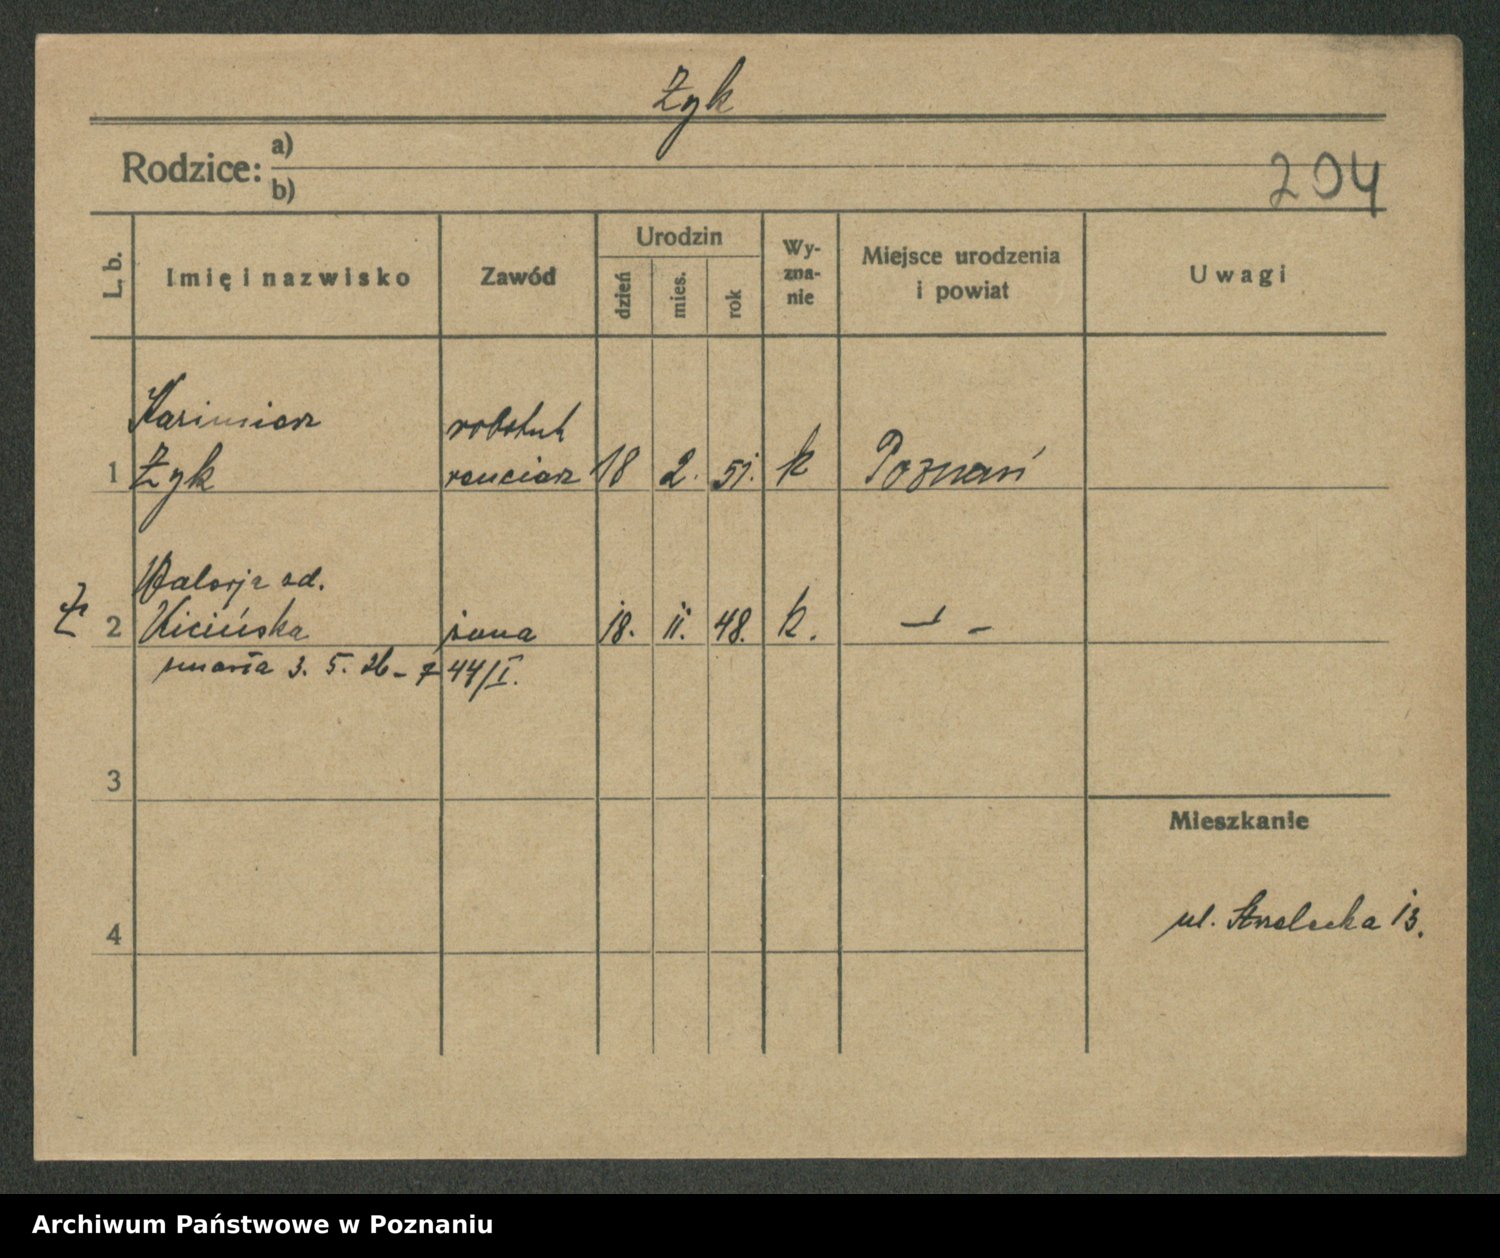 Żyk
Rodzice: a)
b)
204
L. b.
Imię i nazwisko
Zawód
Urodzin
dzień
mies.
rok
Wy-
zna-
nie
Miejsce urodzenia
i powiat
Uwagi
Kazimierz
robotnik
1 Żyk renciarz 18 2. 51. k Poznań
Walerja od.
2 Kicińska żona 18. 11. 48. k. — " —
zmarła 3. 5. 26 - 7 44/I.
3
Mieszkanie
4
ul. Strzelecka 13.
Archiwum Państwowe w Poznaniu